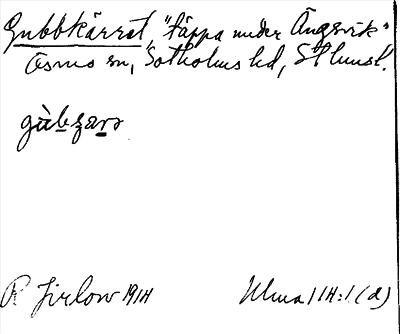 Gubbkärret, "täppa under Ängsvik"
Ösmo sn, Sotholms hd, Sthmsl.
R Jirlow 1914 Ulma 114:1 (d)